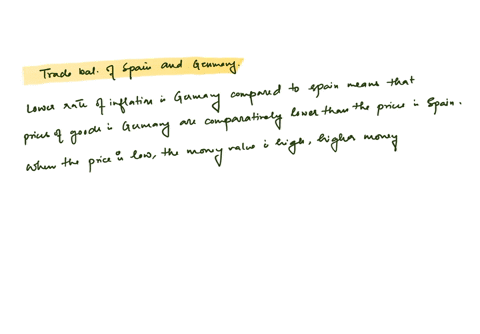 Trade bal. of Spain and Germany.
Lower rate of inflation in Germany compared to Spain means that
prices of goods in Germany are comparatively lower than the prices in Spain.
When the price is low, the money value is high, higher money